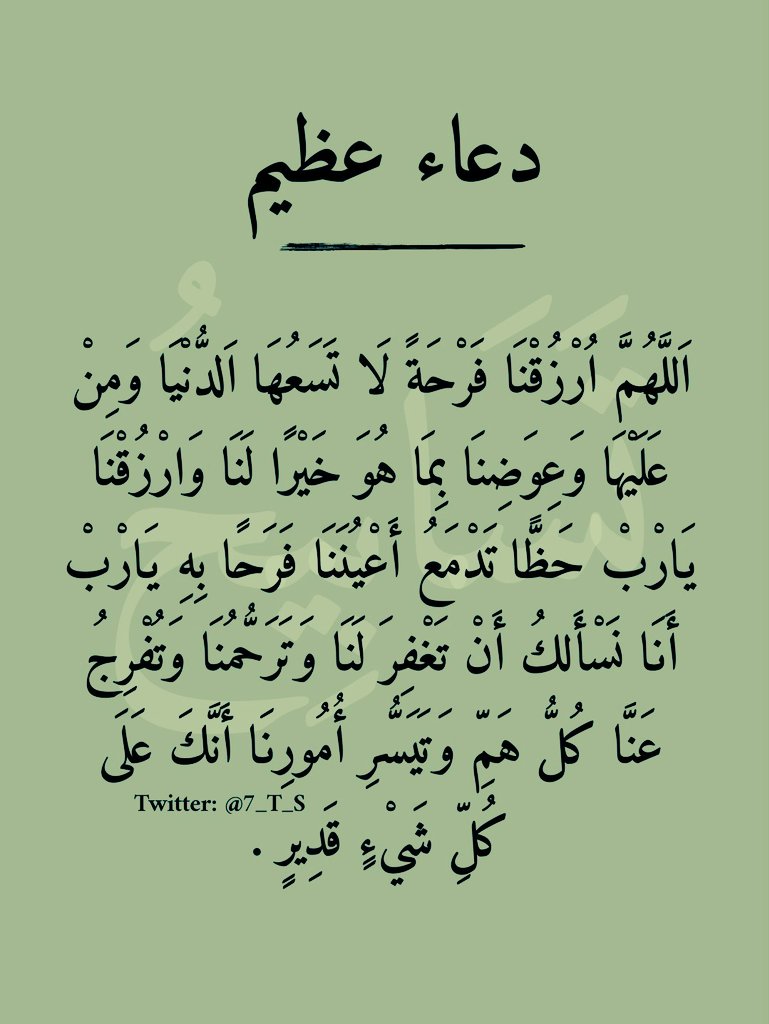 دعاء عظيم
اَللَّهُمَّ اُرْزُقْنَا فَرْحَةً لَا تَسَعُهَا اَلدُّنْيَا وَمِنْ
عَلَيْهَا وَعِوَضِنَا بِمَا هُوَ خَيْرًا لَنَا وَارْزُقْنَا
يَارْبْ حَظًّا تَدْمَعُ أَعْيُنَنَا فَرَحًا بِهِ يَارْبْ
أَنَا نَسْأَلكُ أَنْ تَغْفِرَ لَنَا وَتَرَحُّمُنَا وَتُفْرِجُ
عَنَّا كُلُّ هَمِّ وَتَيَسُّرِ أُمُورِنَا أَنَّكَ عَلَى
Twitter: @7_T_S
كُلِّ شَيْءٍ قَدِيرٍ .
تَسَابِيحُ